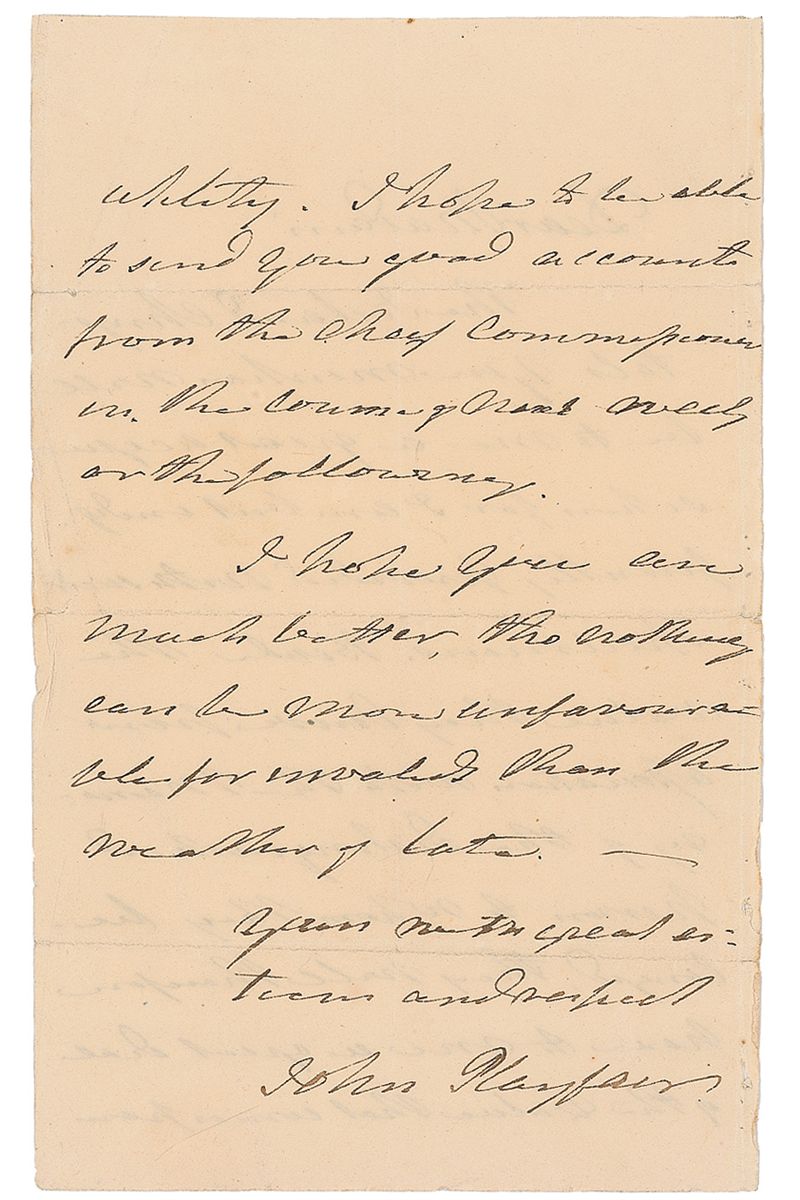 utility. I hope to be able
to send you good accounts
from the Chief Commissioner
in the course of next week
or the following.
I hope you are
much better, tho nothing
can be more unfavoura-
ble for invalids than the
weather of late. —
Yours with great es-
teem and respect
John Playfair